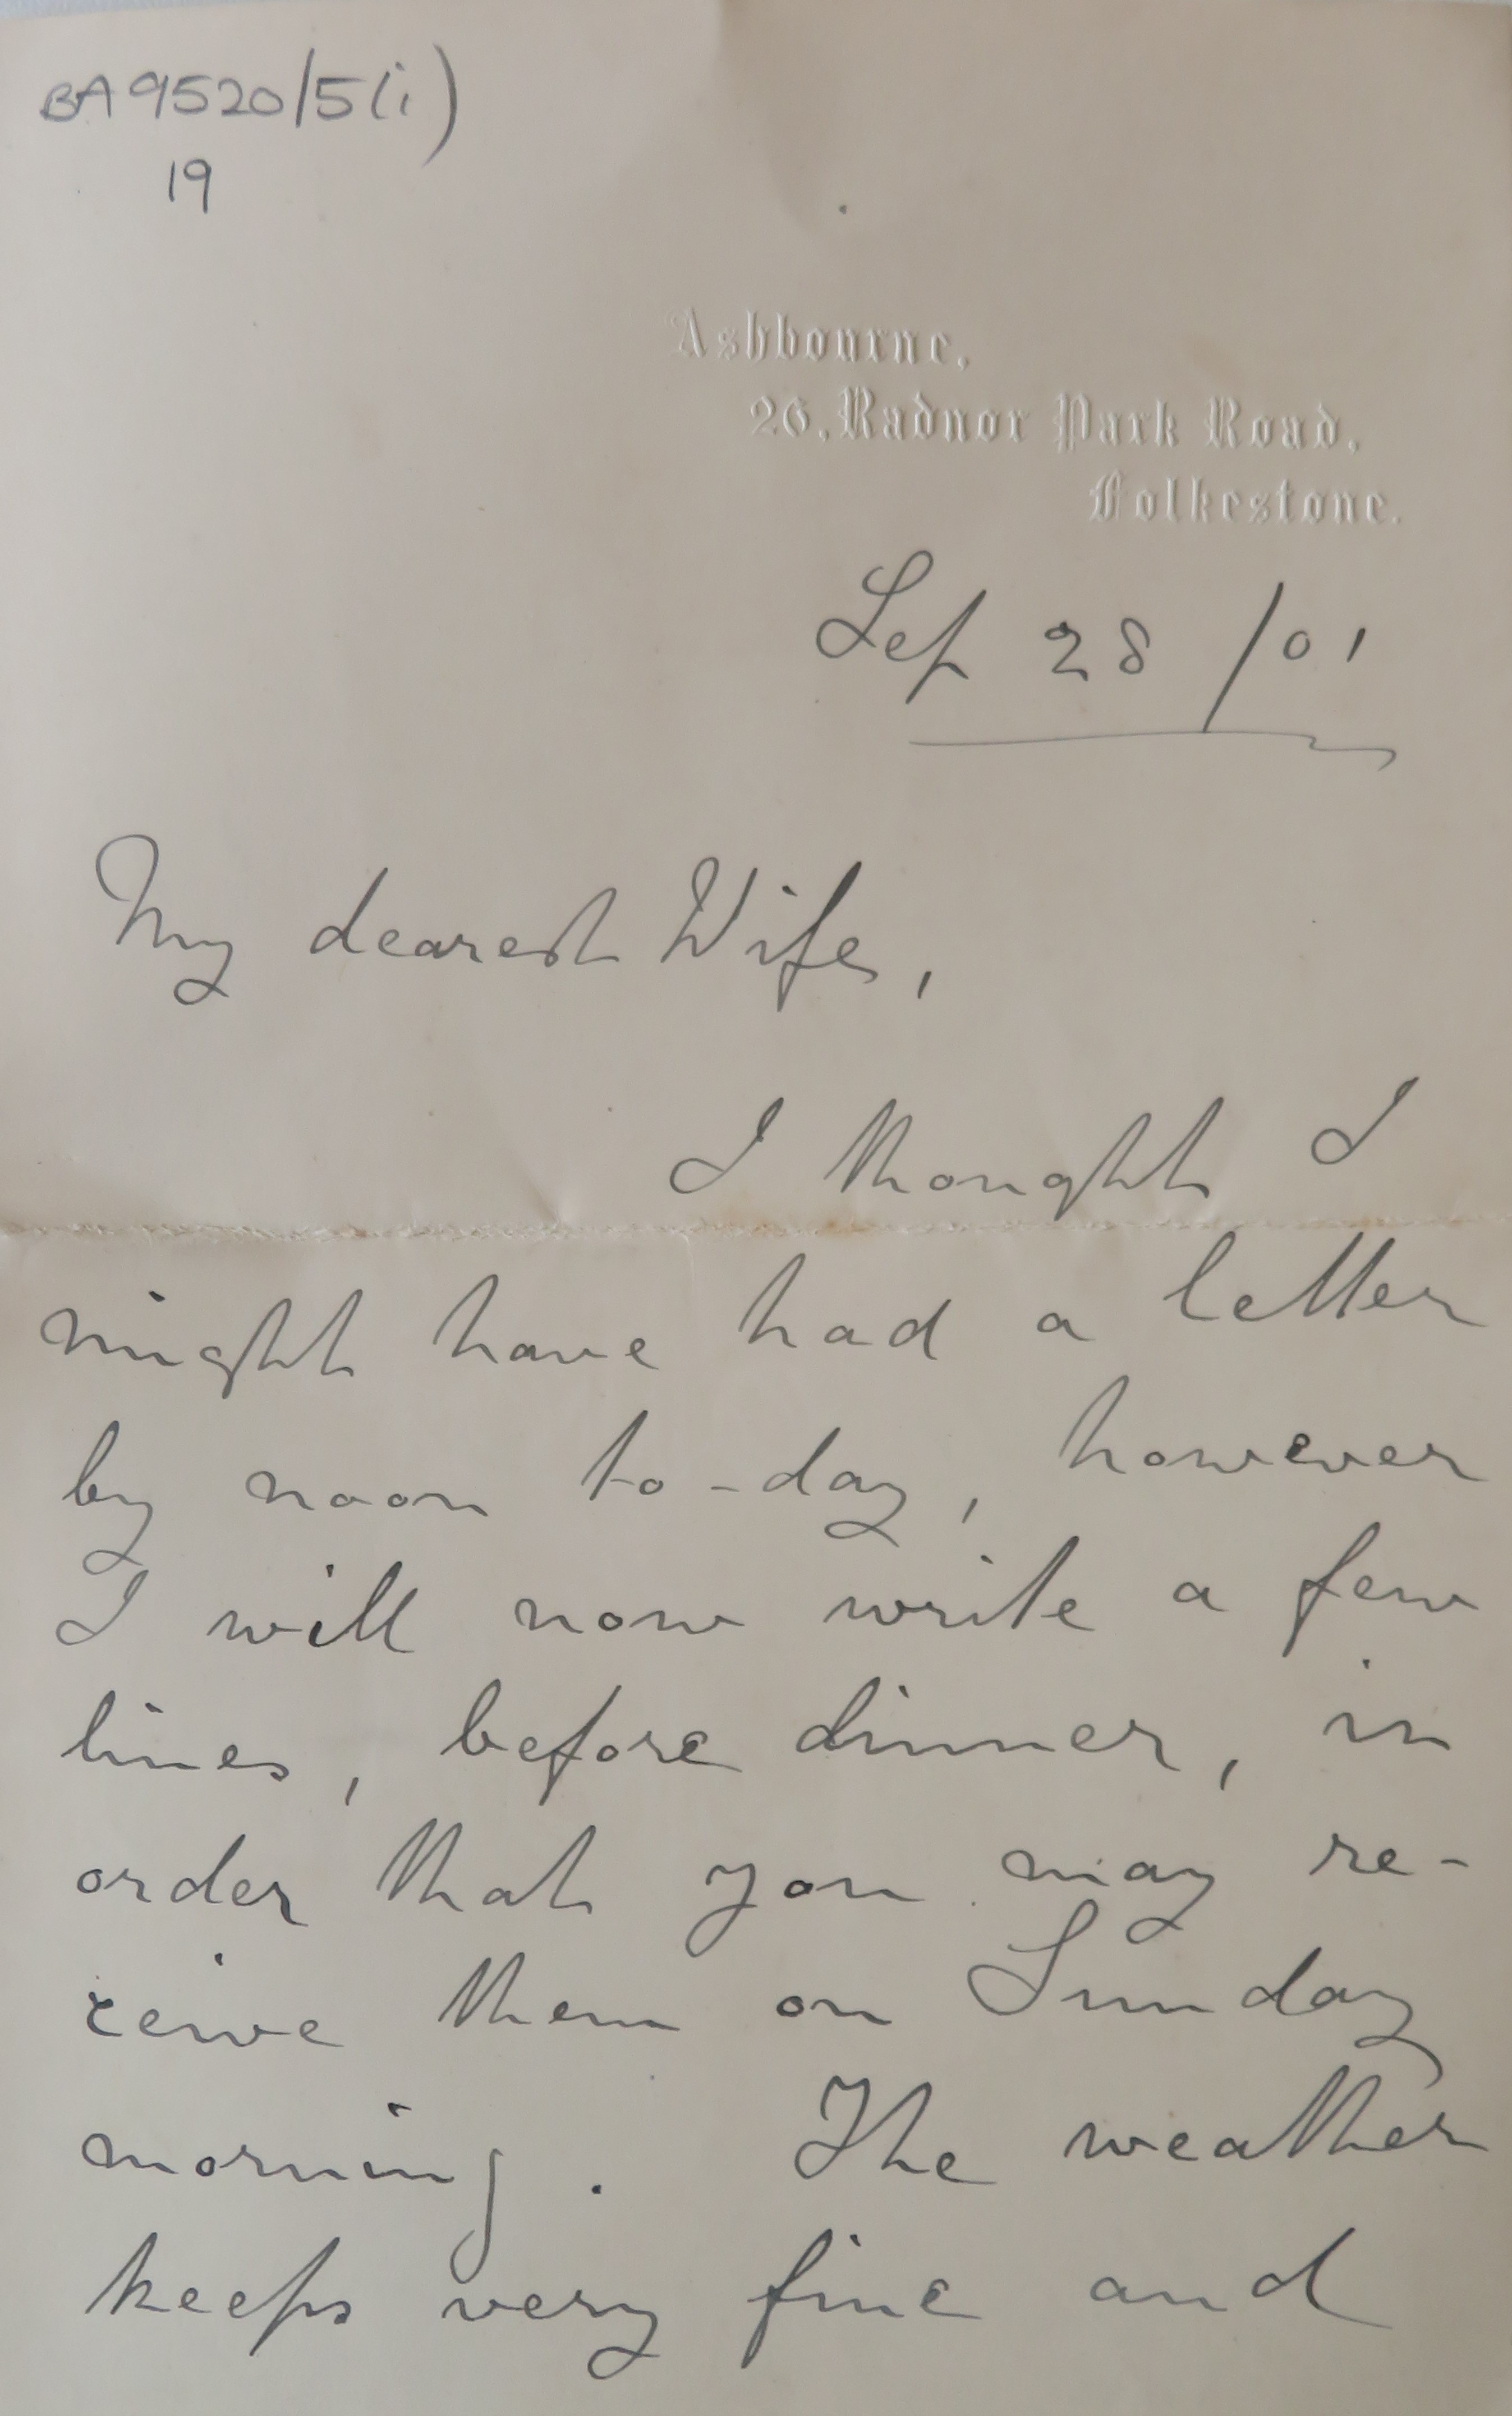 BA 9520/5(i)
19
Ashbourne,
26, Radnor Park Road,
Folkestone.
Sep 28 /01
My dearest Wife,
I thought I
might have had a letter
by noon to-day, however
I will now write a few
lines, before dinner, in
order that you may re-
ceive them on Sunday
morning. The weather
keeps very fine and